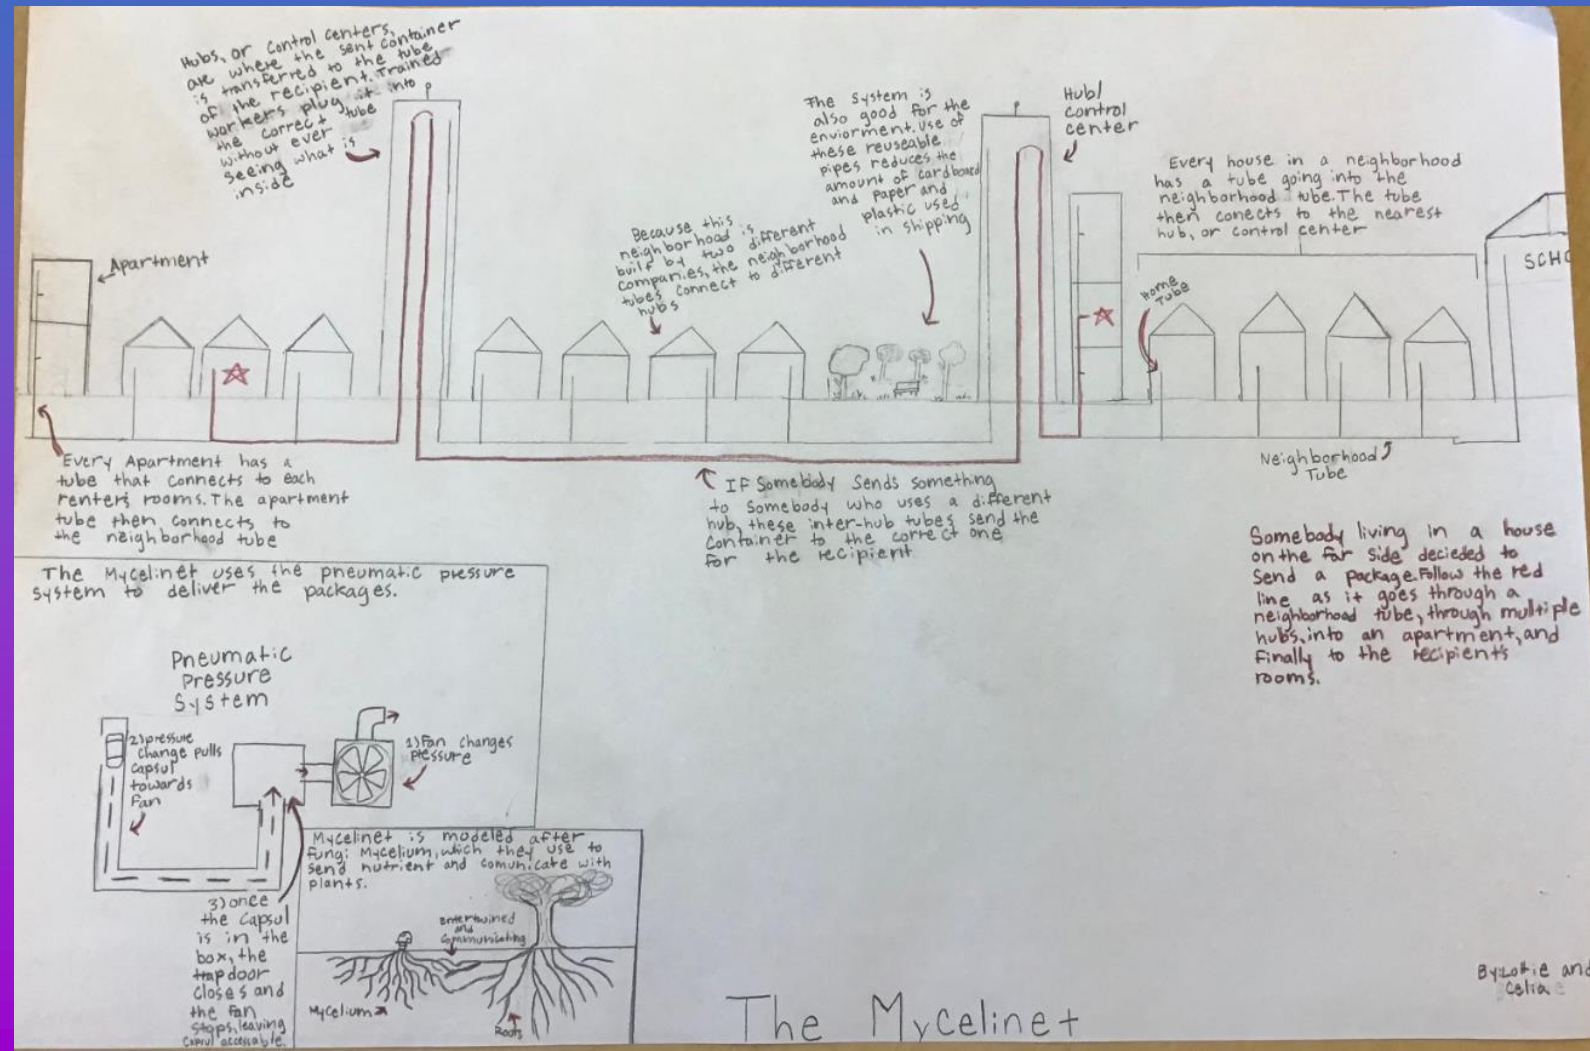 Hubs, or control centers,
are where the sent container
is transferred to the tube
of the recipient. Trained
workers plug it into
the correct tube
without ever
seeing what is
inside
The system is
also good for the
enviorment. Use of
these reuseable
pipes reduces the
amount of cardboard
and paper and
plastic used
in shipping
Hub/
control
center
Every house in a neighborhood
has a tube going into the
neighborhood tube. The tube
then conects to the nearest
hub, or control center
Because this
neighborhood is
built by two different
companies, the neighborhood
tubes connect to different
hubs
Apartment
Home
Tube
SCHO
Every Apartment has a
tube that connects to each
renters rooms. The apartment
tube then connects to
the neighborhood tube
IF Somebody Sends something
to Somebody who uses a different
hub, these inter-hub tubes send the
container to the correct one
for the recipient
Neighborhood
Tube
Somebody living in a house
on the far side decieded to
send a package. Follow the red
line as it goes through a
neighborhood tube, through multiple
hubs, into an apartment, and
finally to the recipient's
rooms.
The Mycelinet uses the pneumatic pressure
system to deliver the packages.
Pneumatic
Pressure
System
2) pressure
change pulls
capsul
towards
fan
1) Fan changes
pressure
3) once
the capsul
is in the
box, the
trap door
closes and
the fan
stops, leaving
capsul accessable.
Mycelinet is modeled after
fungi Mycelium, which they use to
send nutrient and comunicate with
plants.
Entertwined
and
Communicating
Mycelium
Roots
The Mycelinet
By: Lottie and
Celia